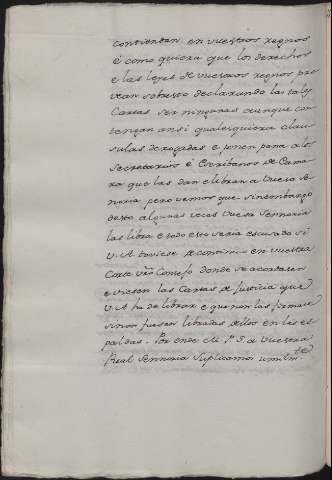 contiendan en vuestros regnos
é como quiera que los derechos
e las leyes de vuestros regnos pro
vean sobresto declarando las tales
Cartas ser ningunas aunque con
tengan ansi qualesquiera clau
sulas derogadas e ponen pena a los
Secretarios é Escribanos de Cama
ra que las dan e libran a Vuesa Se
noria pero vemos que sin embargo
desto algunas veces Vuesa Sennoria
las libra e todo esto seria escusado si
V. A. toviese de contino en vuestra
Corte vro Consejo donde se acordasen
e viesen las Cartas de Justicia que
V. A. ha de librar e que non las firmase
sinon fuesen libradas dellos en las es
paldas. Por ende M. P. S. a Vuestra
Real Sennoria Suplicamos umilmte